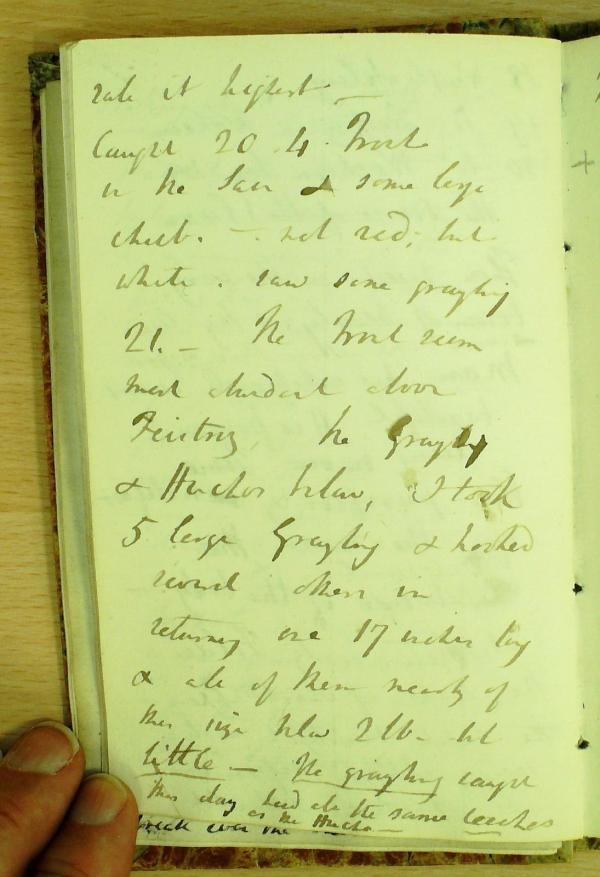 rate it highest —
Caught 20 . 4 . Trout
in the Sav & some large
chub. — not red; but
white . saw some grayling
21. — The Trout seem
most abundant above
Feistritz, the Grayling
& Huchos below, I took
5 large Grayling & hooked
several others in
returning one 17 inches long
& all of them nearly of
this size below 2lb - but
little — The grayling caught
this day had all the same leeches
as the Hucho —